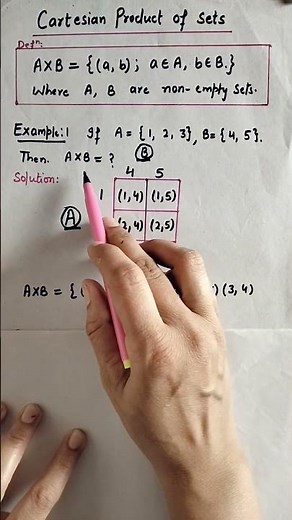 Cartesian Product of Sets
Defn:
A×B = {(a, b) ; a∈A, b∈B.}
Where A, B are non-empty Sets.
Example:1 If A = {1, 2, 3}, B = {4, 5}.
Then A×B = ? B
Solution: 4 5
1 (1,4) (1,5)
A (2,4) (2,5)
A×B = { ( ) (3, 4)